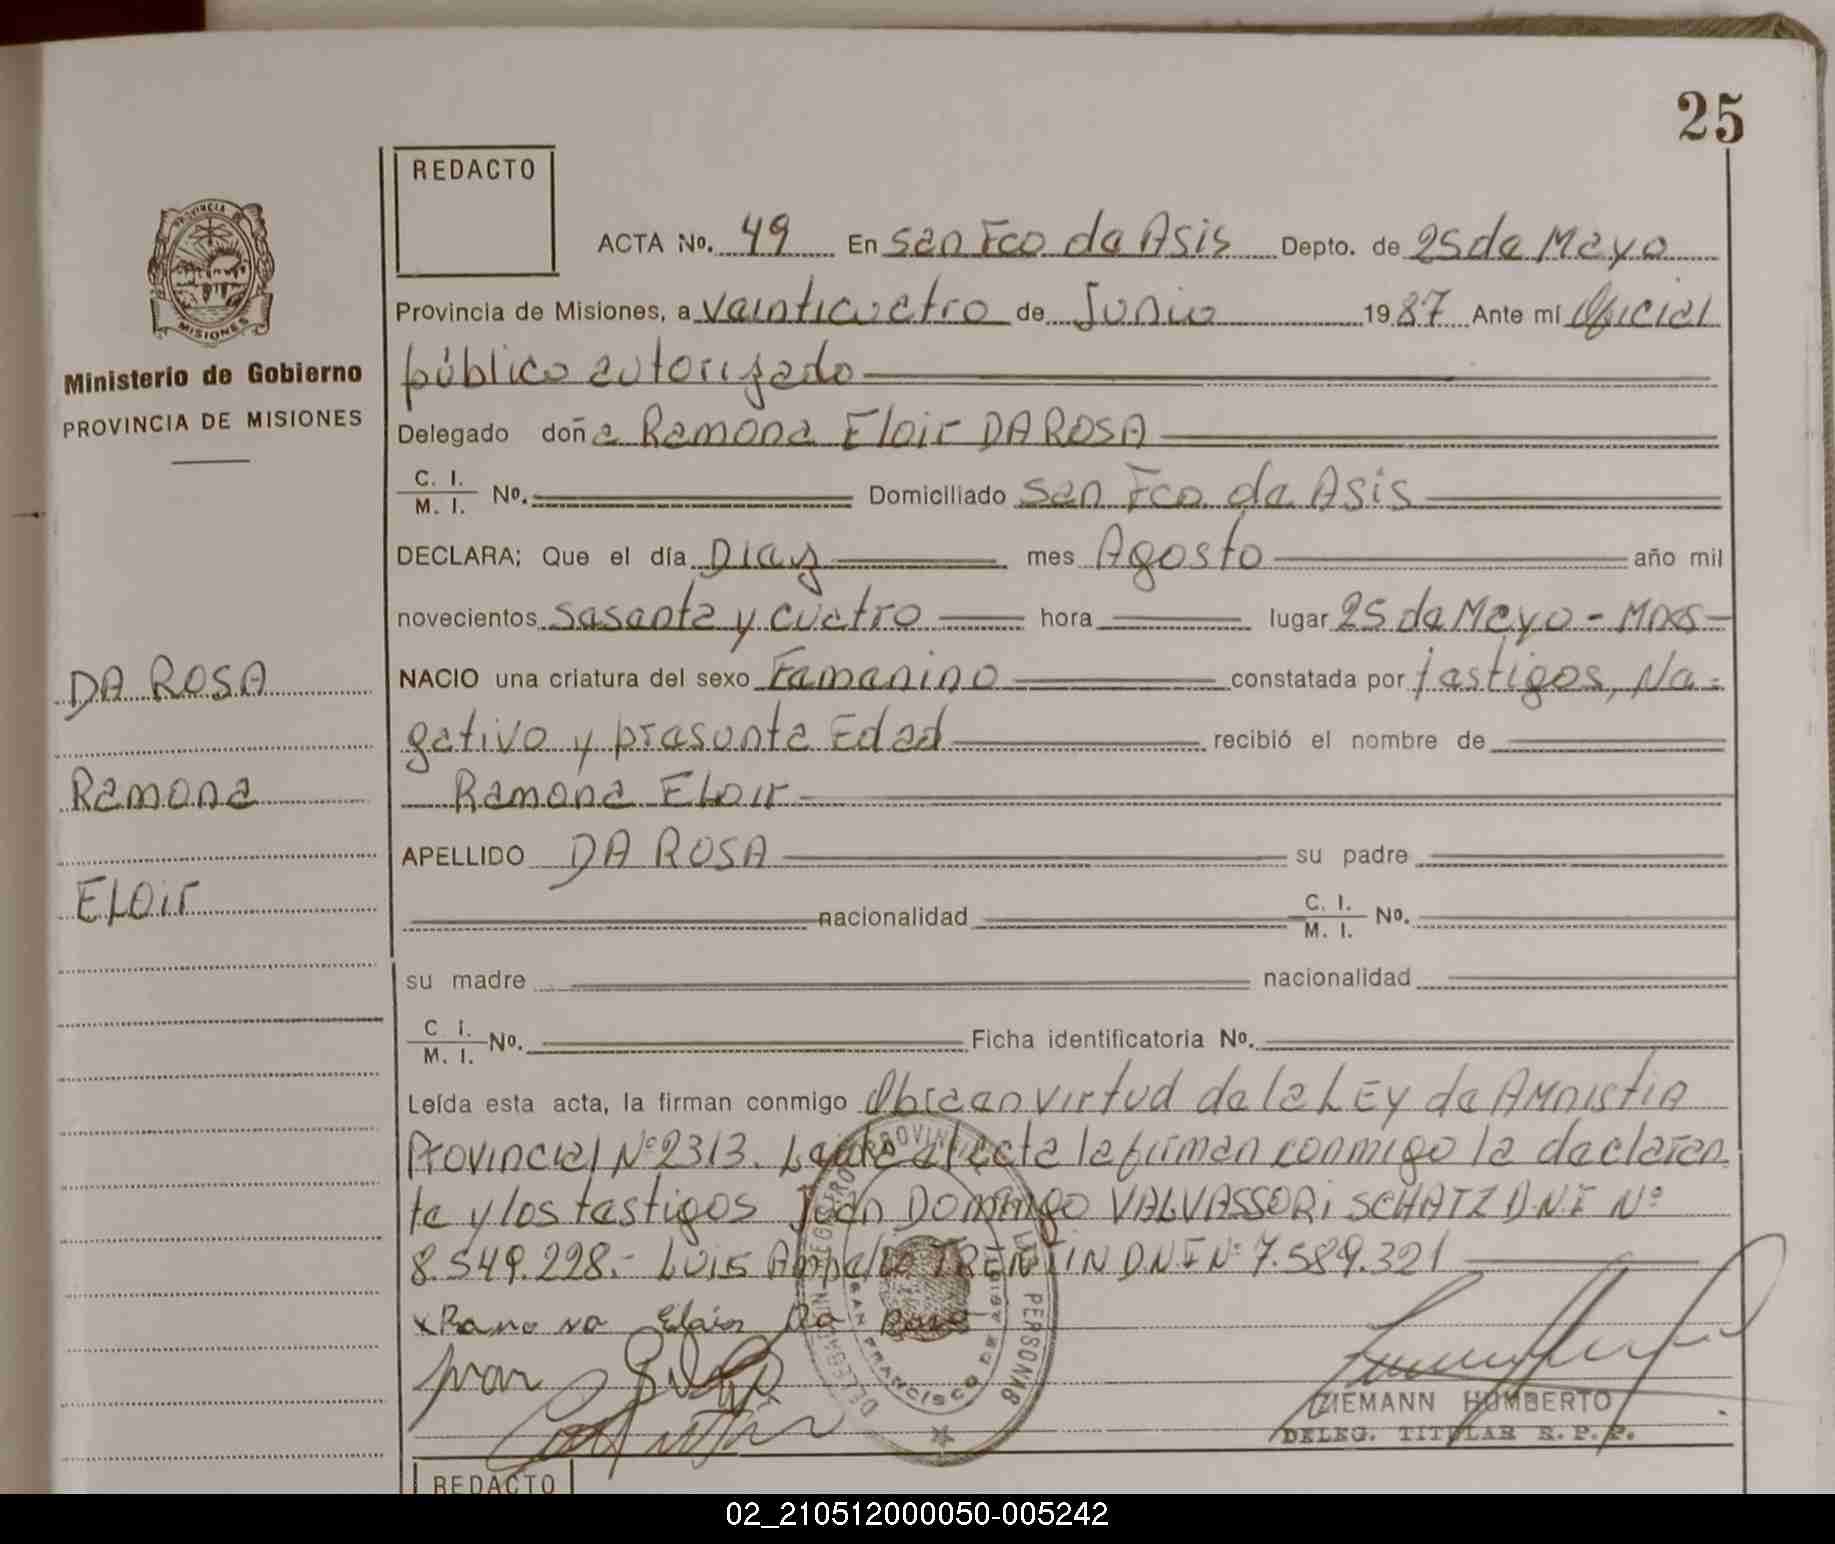 25
REDACTO
PROVINCIA DE MISIONES
Ministerio de Gobierno
PROVINCIA DE MISIONES
ACTA No. 49 En San Fco de Asis Depto. de 25 de Mayo
Provincia de Misiones, a veinticuatro de Junio 1987 Ante mí Oficial
público autorizado
Delegado doña Ramona Eloir DA ROSA
C. I.
M. I. No. Domiciliado San Fco. de Asis
DECLARA; Que el día Diez mes Agosto año mil
novecientos sesenta y cuatro hora lugar 25 de Mayo - Mnes -
DA ROSA
NACIO una criatura del sexo Femenino constatada por testigos, Ne-
gativo y presunta Edad recibió el nombre de
Ramona
Ramona ELoir
APELLIDO DA ROSA su padre
ELoir
nacionalidad C. I.
M. I. No.
su madre nacionalidad
C. I.
M. I. No. Ficha identificatoria No.
Leída esta acta, la firman conmigo Obra en virtud de la LEy de AMnistiA
Provincial Nº 2313. Leida el acta la firman conmigo la declaran
te y los testigos Juan Domingo VALVASSORi SCHATZ D.N.I Nº
8.549.228.- Luis Ampelio TRENTIN D.N.I Nº 7.589.321
x Ramona Eloir Da Rosa
DELEGACION REGISTRO PROVINCIAL DE LAS PERSONAS
SAN FRANCISCO DE ASIS
ZIEMANN HUMBERTO
DELEG. TITULAR R. P. P.
REDACTO
02_210512000050-005242